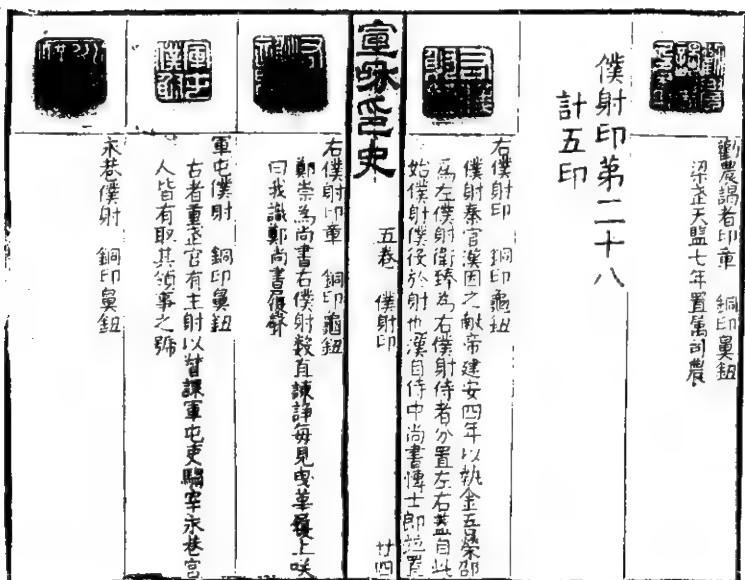 勸農謁者印章　銅印鼻鈕
梁武天監七年置屬司農
僕射印第二十八
計五印
右僕射印　銅印龜鈕
僕射秦官漢因之獻帝建安四年以執金吾榮郃
為左僕射衛臻為右僕射侍者分置左右蓋自此
始僕射僕役於射也漢自侍中尚書博士郎竝置
宣和印史
五卷　僕射印
廿四
右僕射印章　銅印龜鈕
鄭崇為尚書右僕射數直諫諍每見曳革履上咲
曰我識鄭尚書履聲
軍屯僕射　銅印鼻鈕
古者重武官有主射以督課軍屯吏騶宰永巷宮
人皆有取其領事之號
永巷僕射　銅印鼻鈕